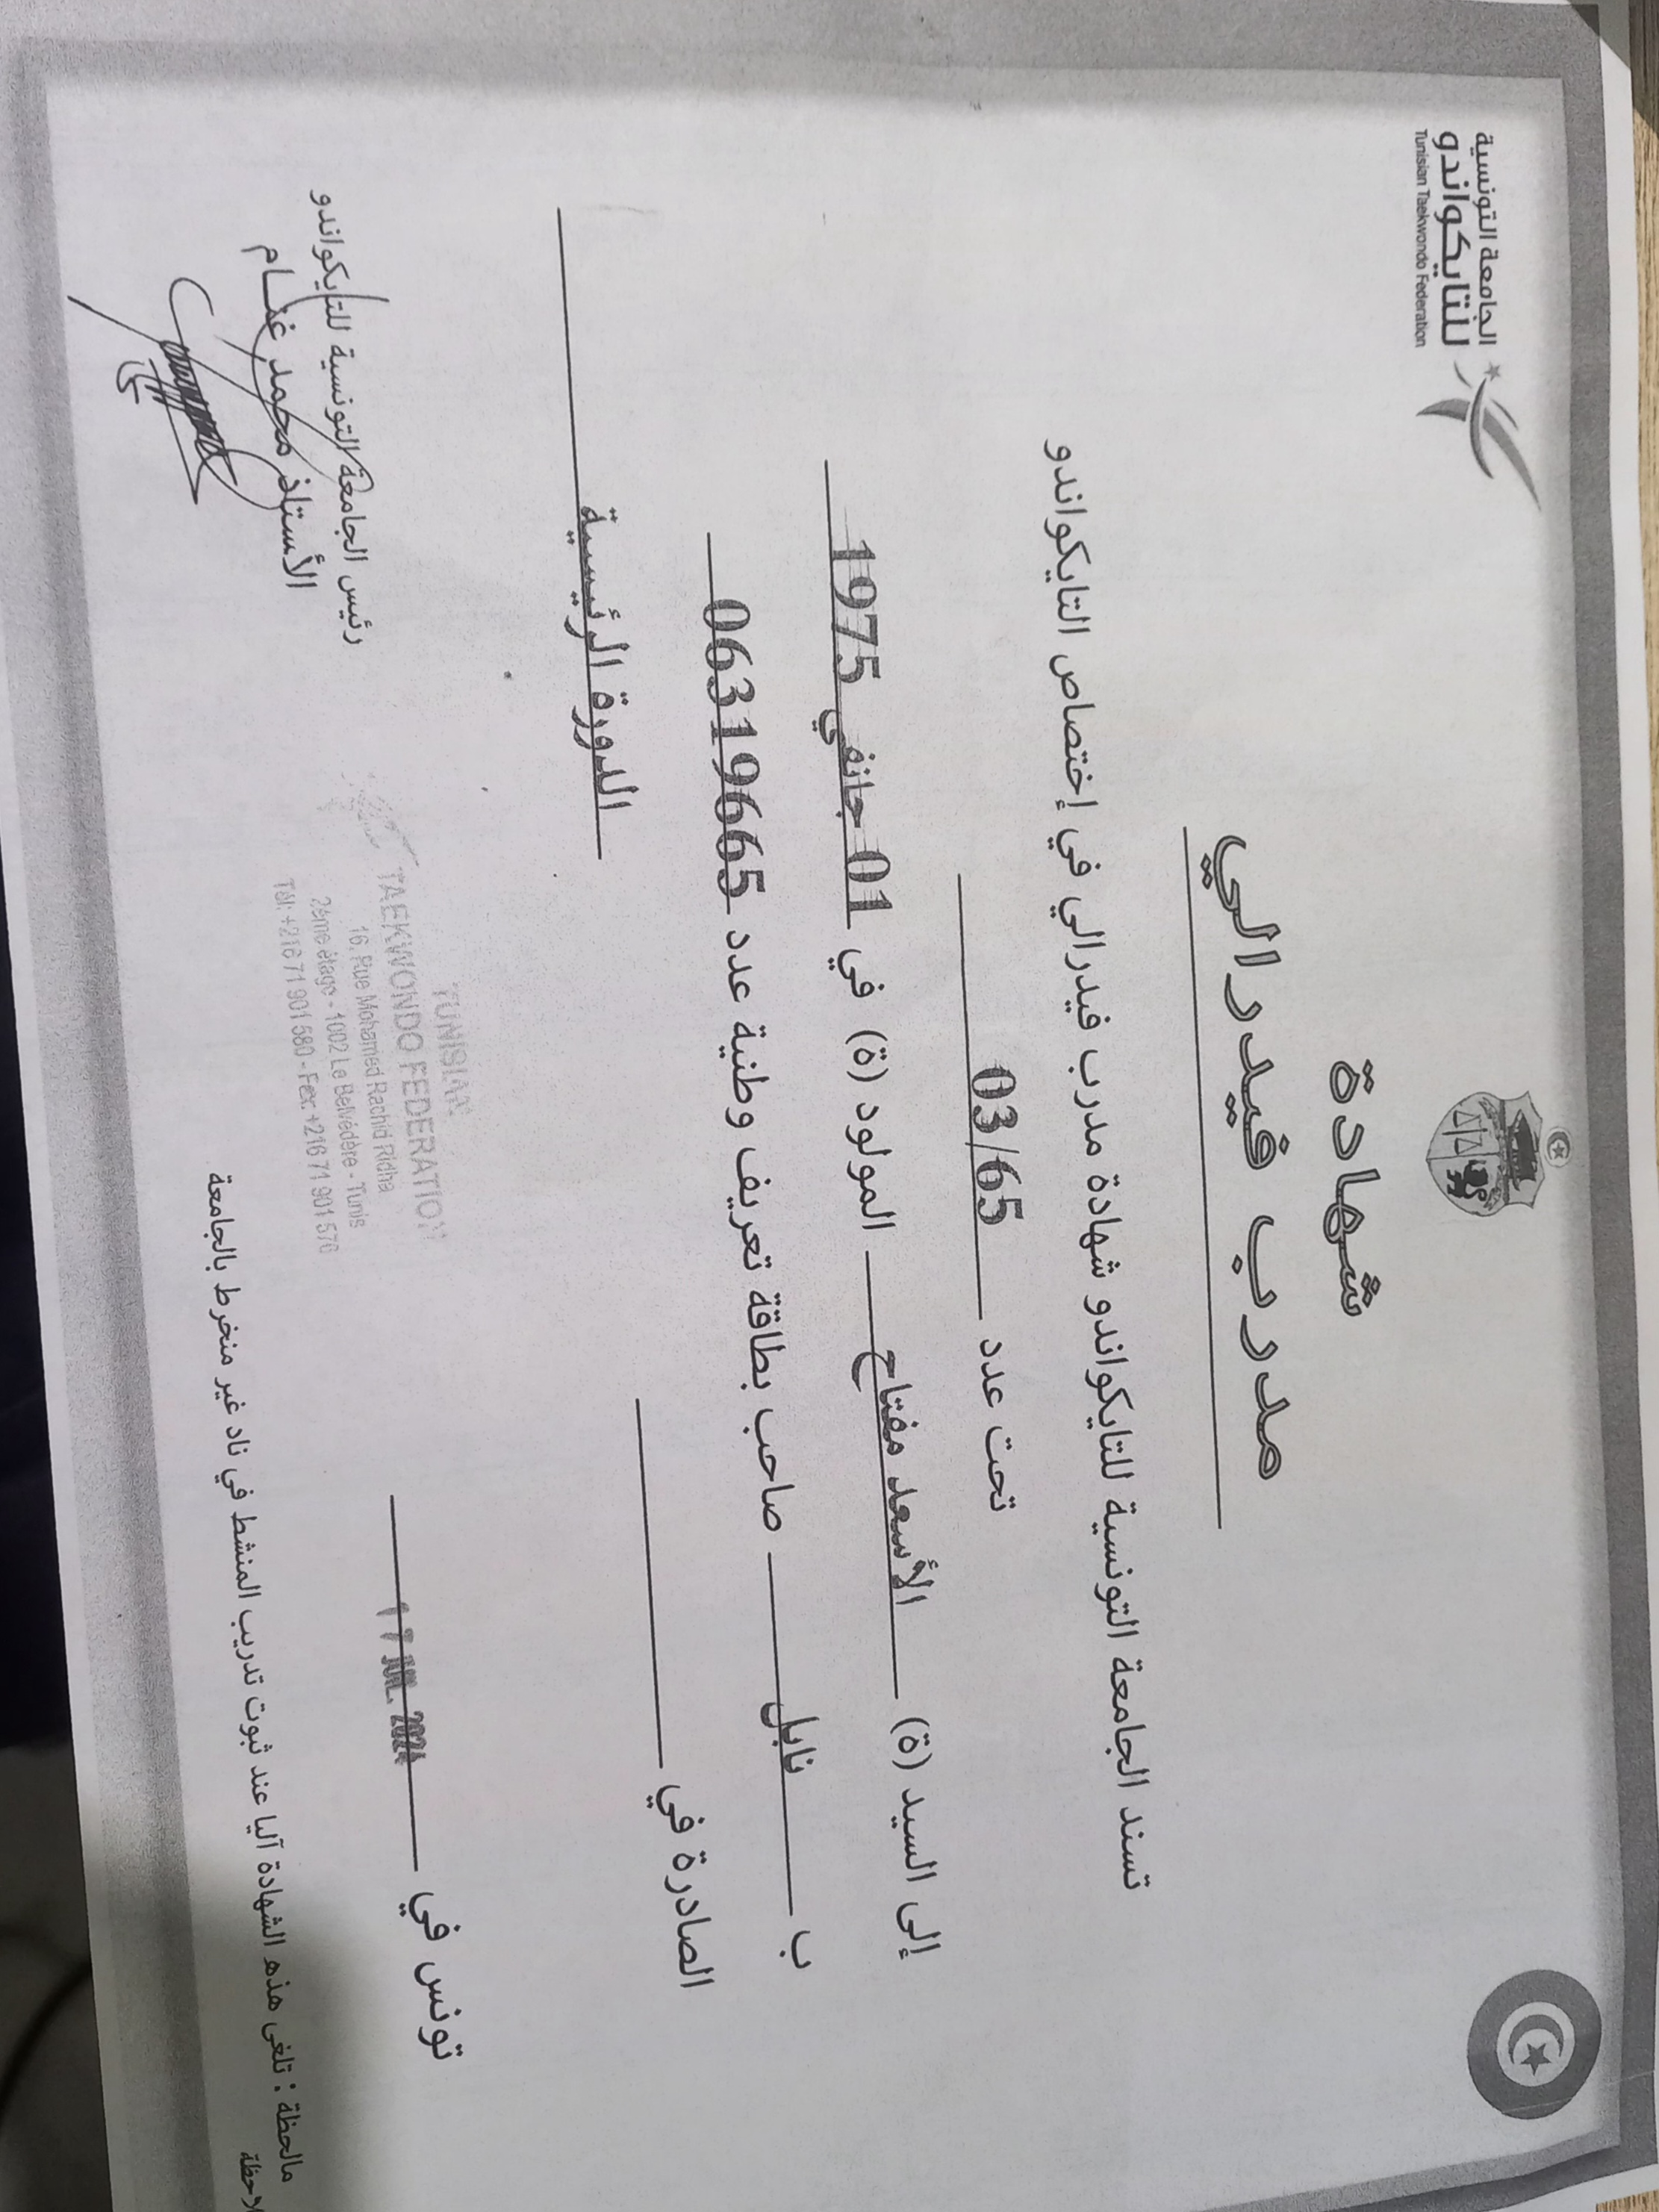 الجامعة التونسية
للتايكواندو
Tunisian Taekwondo Federation
شهادة
مدرب فيدرالي
تسند الجامعة التونسية للتايكواندو شهادة مدرب فيدرالي في إختصاص التايكواندو
تحت عدد 03/65
إلى السيد (ة) الأسعد مفتاح المولود (ة) في 01 جانفي 1975
ب نابل صاحب بطاقة تعريف وطنية عدد 06319665
الصادرة في الدورة الرئيسية
تونس في 17 JUIL. 2024
رئيس الجامعة التونسية للتايكواندو
الأستاذ محمد غنام
TUNISIAN
TAEKWONDO FEDERATION
16, Rue Mohamed Rachid Ridha
2ème étage - 1002 Le Belvédère - Tunis
Tél: +216 71 901 580 - Fax: +216 71 901 570
مالحظة : تلغى هذه الشهادة آليا عند ثبوت تدريب المنشط في ناد غير منخرط بالجامعة